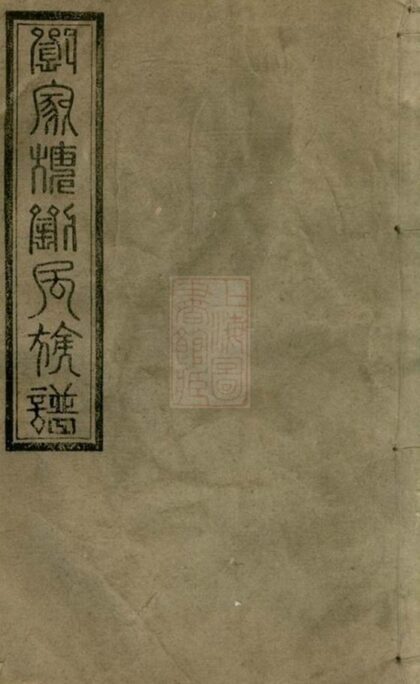 家劉氏族譜
上海圖
書館藏